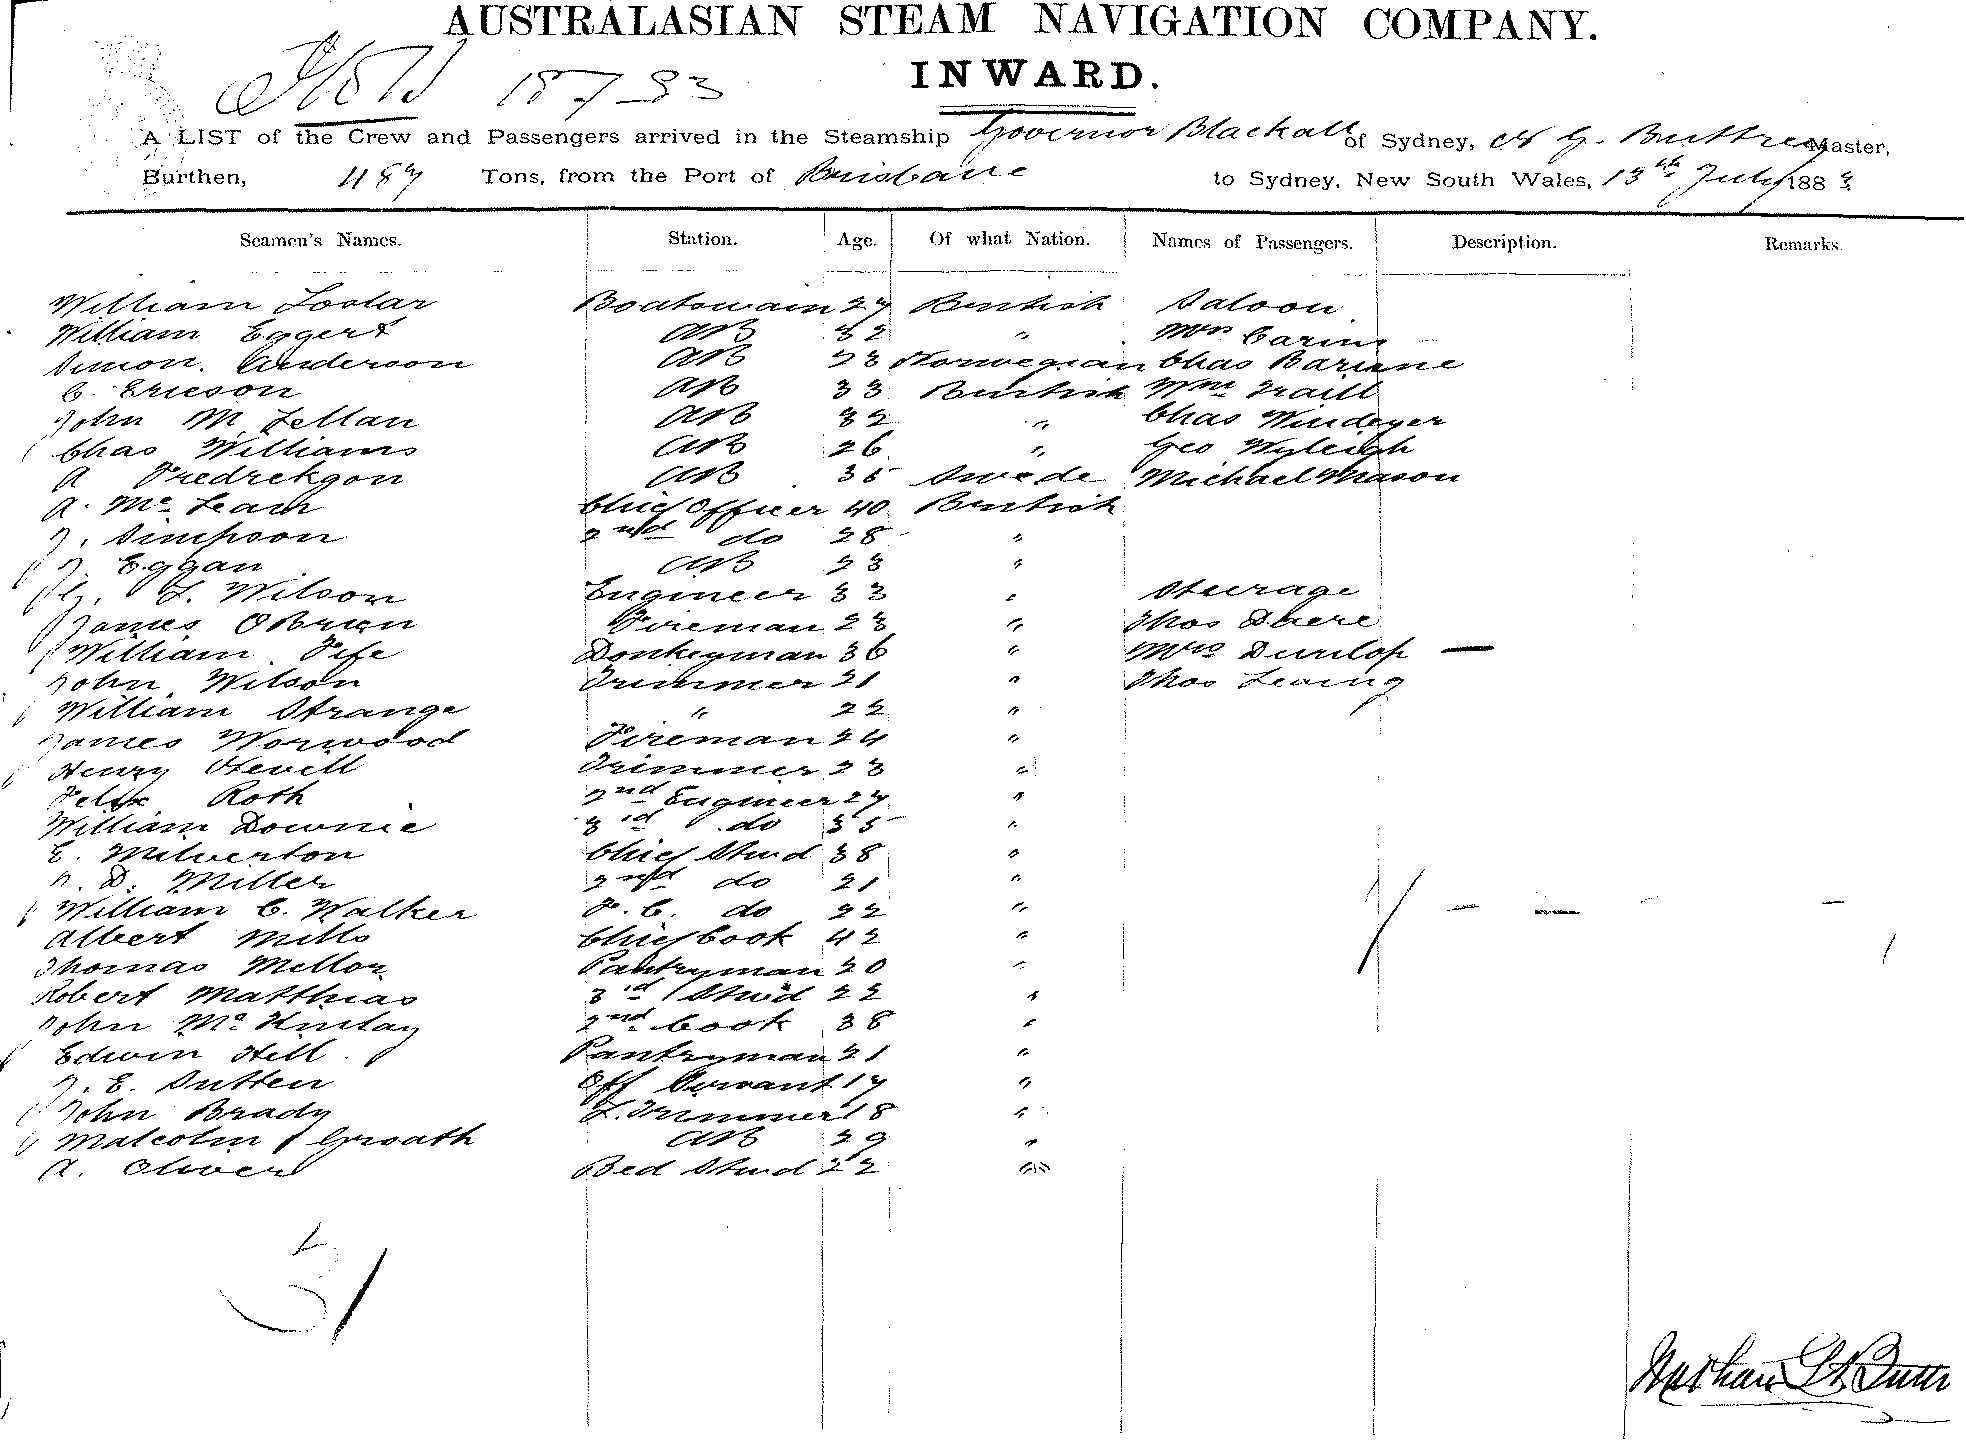 AUSTRALASIAN STEAM NAVIGATION COMPANY.
INWARD.
A LIST of the Crew and Passengers arrived in the Steamship Governor Blackall of Sydney, Master,
Burthen, 487 Tons, from the Port of Brisbane to Sydney, New South Wales, 13th July 1883
Seamen's Names. Station. Age. Of what Nation. Names of Passengers. Description. Remarks.
William Boatswain 27 British Saloon
William Eggert AB 32 " Mrs
Simon. Anderson AB 23 Norwegian Chas
C. Ericson AB 33 British Wm Traill
John AB 32 " Chas Windeyer
Chas Williams AB 26 " Geo Wyleigh
A Fredrekson AB 35 Swede Michael Mason
A. Mc Lean Chief Officer 40 British
J. Simpson 2nd do 28 "
J. Eggan AB 23 "
L. Wilson Engineer 33 " Steerage
James OBrien Fireman 23 " Thos
William Fife Donkeyman 36 " Mrs Dunlop —
John Wilson Trimmer 21 " Thos
William Strange " 22 "
James Worwood Fireman 24 "
Henry Trimmer 23 "
Felix Roth 2nd Engineer 27 "
William Downie 3rd do 35 "
E. Milverton Chief Stwd 38 "
D. Miller 2nd do 21 "
William C. Walker F. C. do 22 "
Albert Mills Chief Cook 42 "
Thomas Mellor Pantryman 20 "
Robert Matthias 3rd Stwd 22 "
John Mc Kinlay 2nd Cook 38 "
Edwin Hill Pantryman 21 "
J. E. Sutten Off Servant 17 "
John Brady Trimmer 18 "
Malcolm Groath AB 29 "
A. Oliver Bed Stwd 22 "
31